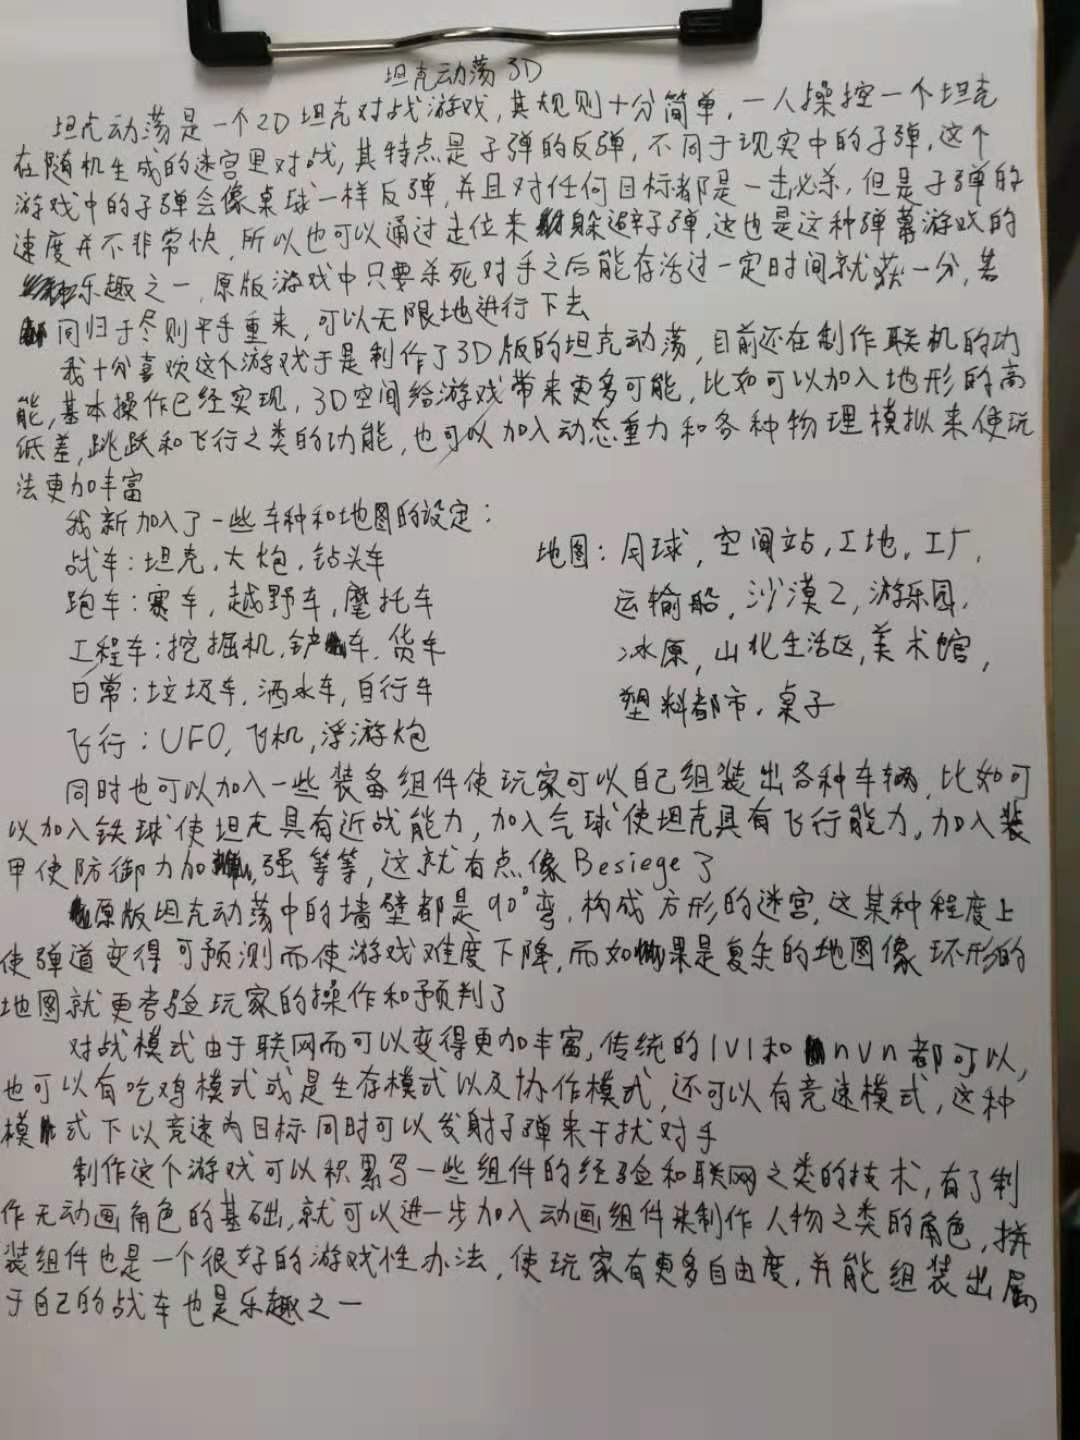 坦克动荡3D
坦克动荡是一个2D坦克对战游戏,其规则十分简单,一人操控一个坦克
在随机生成的迷宫里对战,其特点是子弹的反弹,不同于现实中的子弹,这个
游戏中的子弹会像桌球一样反弹,并且对任何目标都是一击必杀,但是子弹的
速度并不非常快,所以也可以通过走位来躲避子弹,这也是这种弹幕游戏的
乐趣之一,原版游戏中只要杀死对手之后能存活过一定时间就获一分,若
同归于尽则平手重来,可以无限地进行下去
我十分喜欢这个游戏于是制作了3D版的坦克动荡,目前还在制作联机的功
能,基本操作已经实现,3D空间给游戏带来更多可能,比如可以加入地形的高
低差,跳跃和飞行之类的功能,也可以加入动态重力和各种物理模拟来使玩
法更加丰富
我新加入了一些车种和地图的设定:
战车:坦克,大炮,钻头车
跑车:赛车,越野车,摩托车
工程车:挖掘机,铲车,货车
日常:垃圾车,洒水车,自行车
飞行:UFO,飞机,浮游炮
地图:月球,空间站,工地,工厂,
运输船,沙漠2,游乐园,
冰原,山北生活区,美术馆,
塑料都市,桌子
同时也可以加入一些装备组件使玩家可以自己组装出各种车辆,比如可
以加入铁球使坦克具有近战能力,加入气球使坦克具有飞行能力,加入装
甲使防御力加强等等,这就有点像Besiege了
原版坦克动荡中的墙壁都是90°弯,构成方形的迷宫,这某种程度上
使弹道变得可预测而使游戏难度下降,而如果是复杂的地图像环形的
地图就更考验玩家的操作和预判了
对战模式由于联网而可以变得更加丰富,传统的1V1和nVn都可以,
也可以有吃鸡模式或是生存模式以及协作模式,还可以有竞速模式,这种
模式下以竞速为目标同时可以发射子弹来干扰对手
制作这个游戏可以积累写一些组件的经验和联网之类的技术,有了制
作无动画角色的基础,就可以进一步加入动画组件来制作人物之类的角色,拼
装组件也是一个很好的游戏性办法,使玩家有更多自由度,并能组装出属
于自己的战车也是乐趣之一